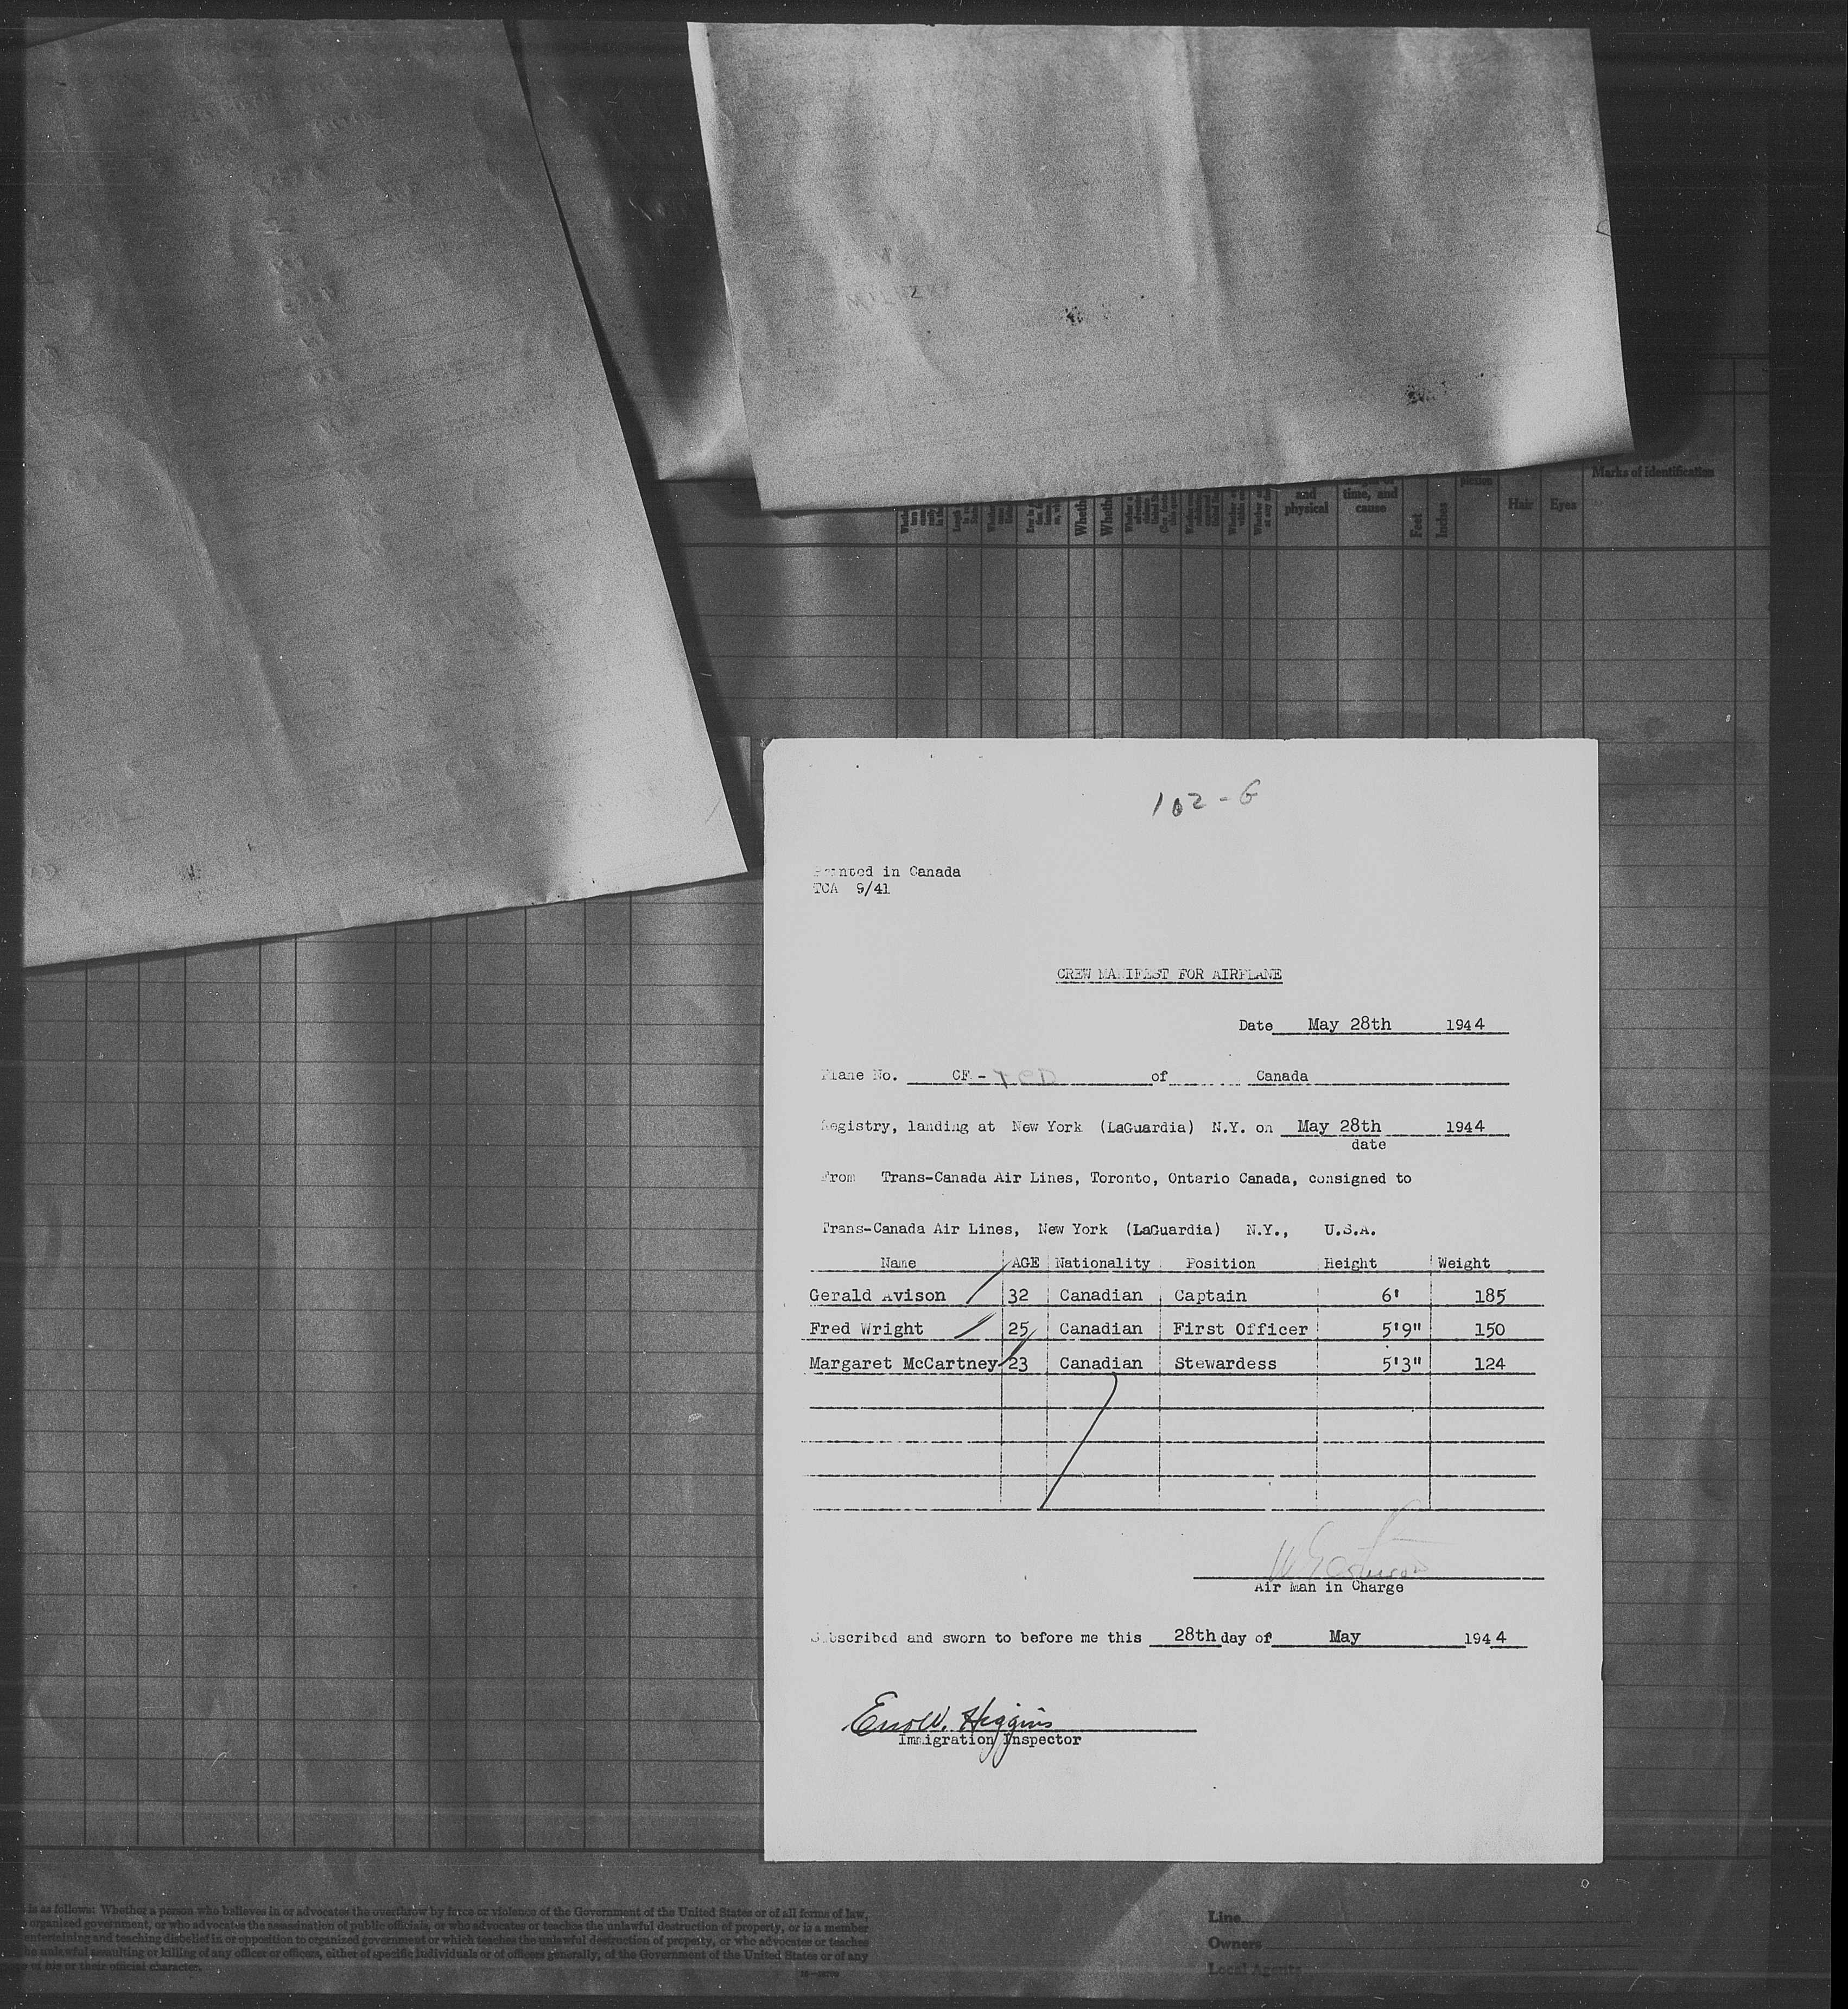 Marks of identification
and
physical
time, and
cause
Feet
Inches
Hair
Eyes
102-G
Printed in Canada
TCA 9/41
CREW MANIFEST FOR AIRPLANE
Date May 28th 1944
Plane No. CF- of Canada
Registry, landing at New York (LaGuardia) N.Y. on May 28th 1944
date
From Trans-Canada Air Lines, Toronto, Ontario Canada, consigned to
Trans-Canada Air Lines, New York (LaGuardia) N.Y., U.S.A.
Name AGE Nationality Position Height Weight
Gerald Avison 32 Canadian Captain 6' 185
Fred Wright 25 Canadian First Officer 5'9" 150
Margaret McCartney 23 Canadian Stewardess 5'3" 124
Air Man in Charge
Subscribed and sworn to before me this 28th day of May 1944
Higgins
Immigration Inspector
is as follows: Whether a person who believes in or advocates the overthrow by force or violence of the Government of the United States or of all forms of law,
organized government, or who advocates the assassination of public officials, or who advocates or teaches the unlawful destruction of property, or is a member
entertaining and teaching disbelief in or opposition to organized government or which teaches the unlawful destruction of property, or who advocates or teaches
the unlawful assaulting or killing of any officer or officers, either of specific individuals or of officers generally, of the Government of the United States or of any
of his or their official character.
Line
Owners
Local Agents